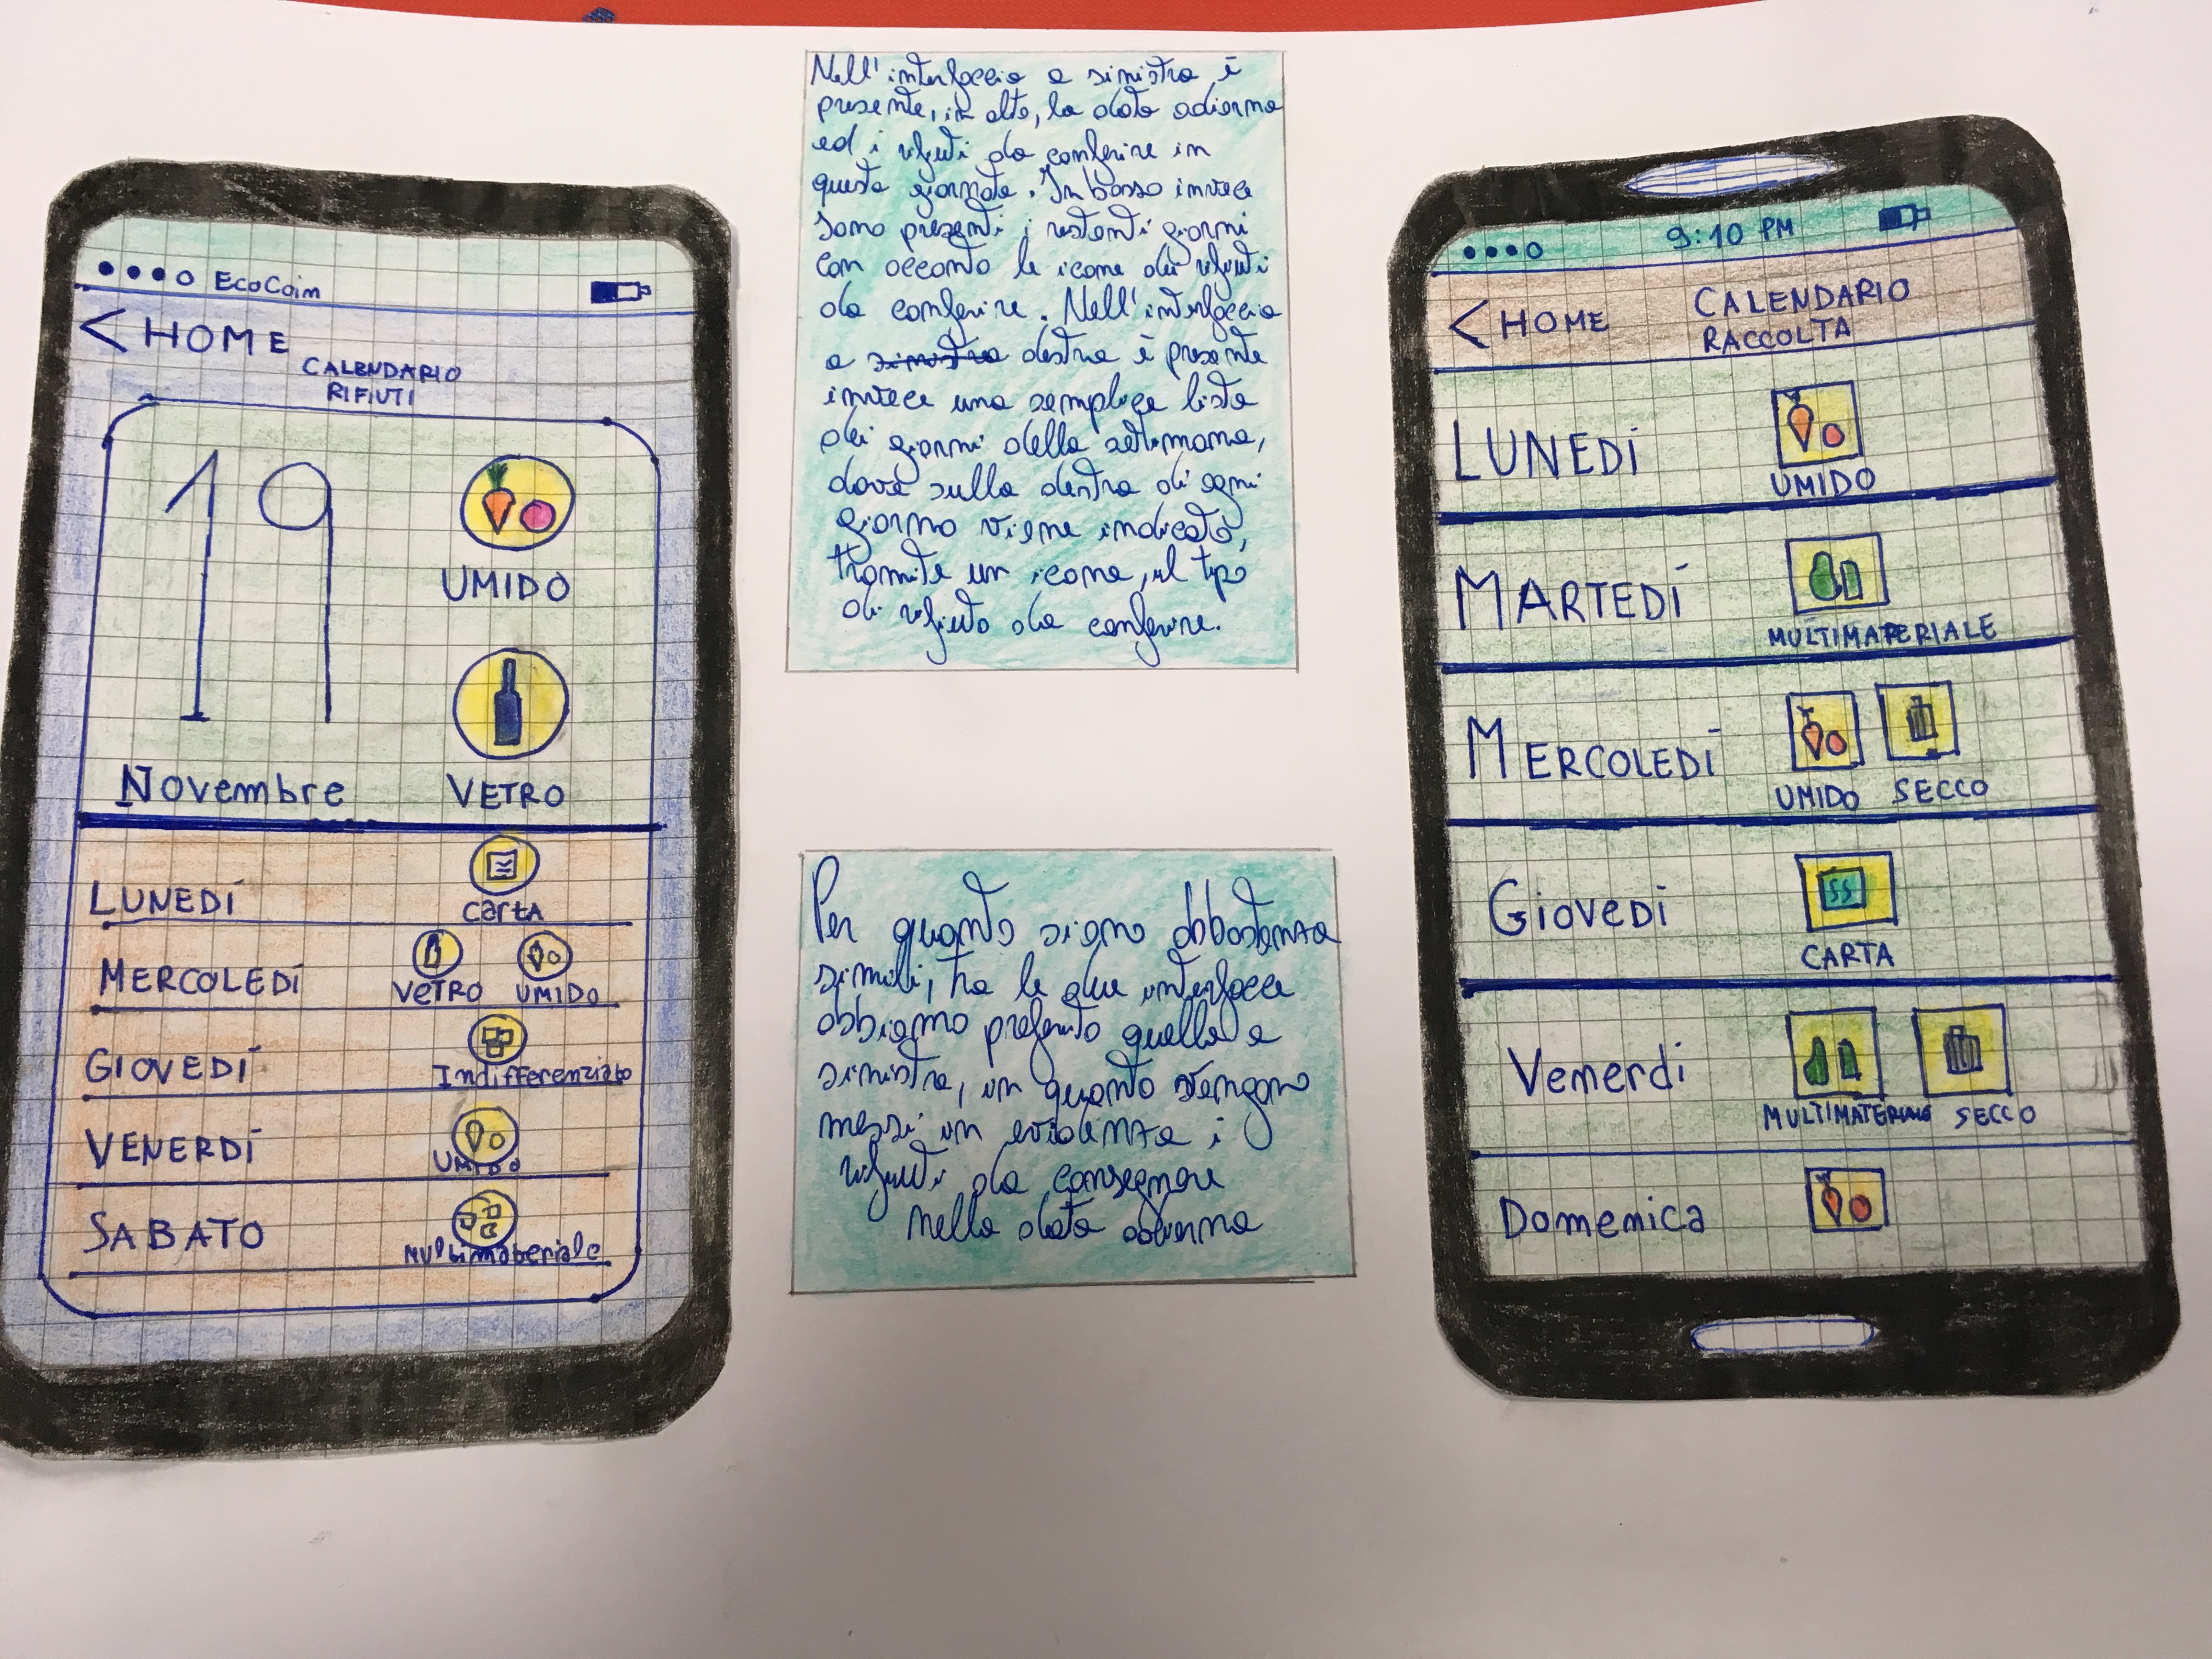 EcoCoin
< HOME
CALENDARIO
RIFIUTI
19
UMIDO
VETRO
Novembre
LUNEDÍ
CartA
MERCOLEDÍ
VETRO UMIDO
GIOVEDÍ
Indifferenziato
VENERDÍ
UMIDO
SABATO
Multimateriale
Nell'interfaccia a sinistra è
presente, in alto, la data odierna
ed i rifiuti da conferire in
questa giornata. In basso invece
sono presenti i restanti giorni
con accanto le icone dei rifiuti
da conferire. Nell'interfaccia
a sinistra destra è presente
invece una semplice lista
dei giorni della settimana,
dove sulla destra di ogni
giorno viene indicato,
tramite un icona, il tipo
di rifiuto da conferire.
Per quanto siano abbastanza
simili, tra le due interfacce
abbiamo preferito quella a
sinistra, in quanto vengono
messi in evidenza i
rifiuti da consegnare
nella data odierna
9:10 PM
< HOME CALENDARIO
RACCOLTA
LUNEDÍ
UMIDO
MARTEDÍ
MULTIMATERIALE
MERCOLEDÍ
UMIDO SECCO
GiovEDi
CARTA
Venerdi
MULTIMATERIALE SECCO
Domenica